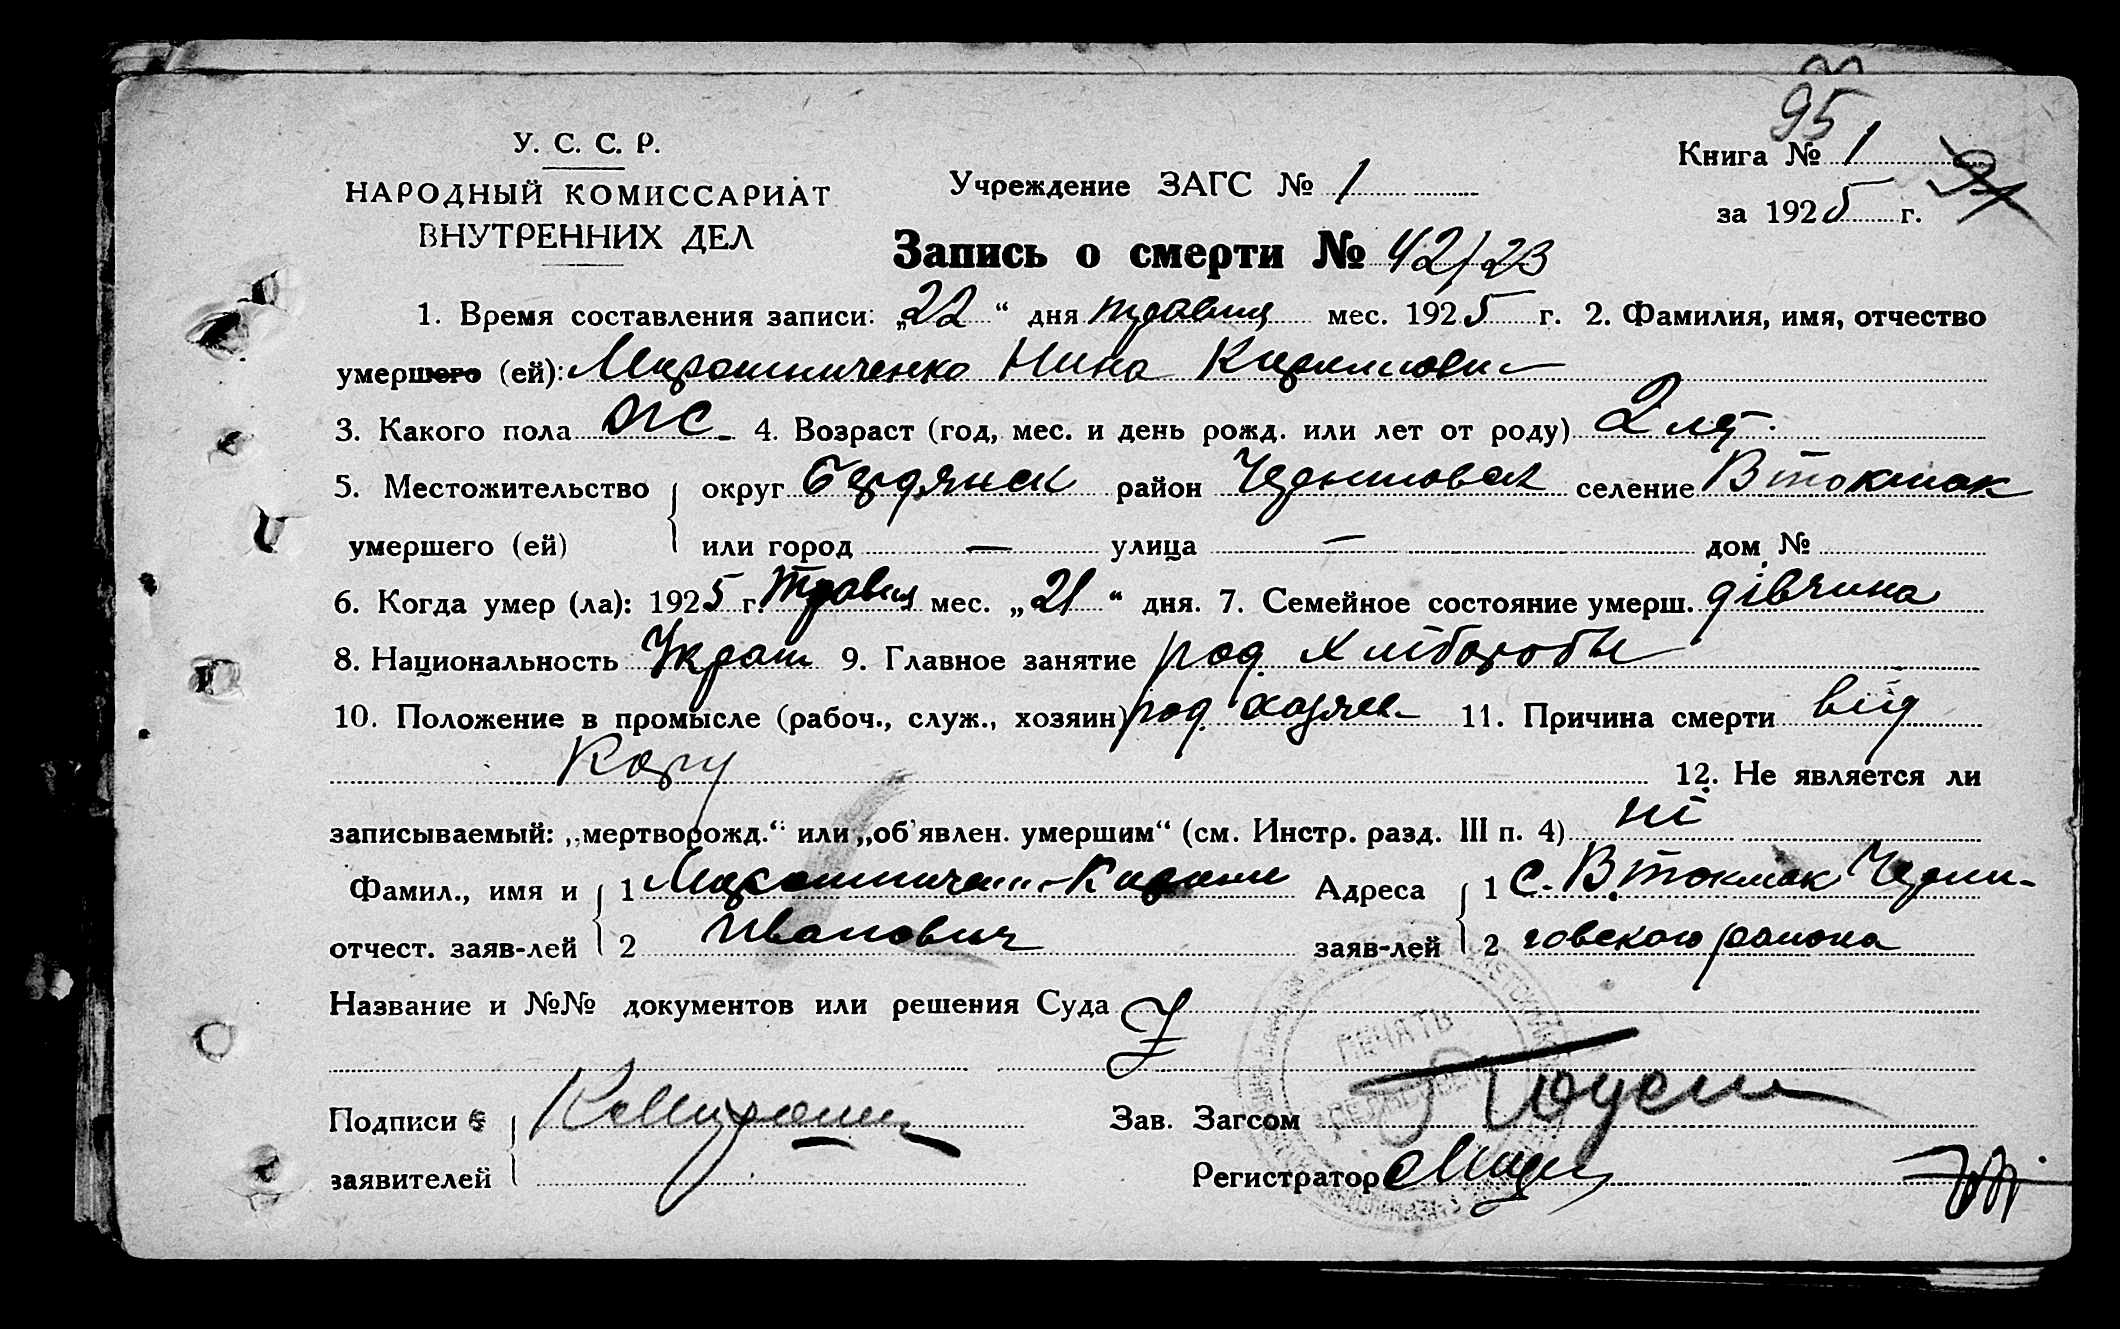 95
У. С. С. Р.
НАРОДНЫЙ КОМИССАРИАТ
ВНУТРЕННИХ ДЕЛ
Учреждение ЗАГС № 1
Книга № 1
за 1925 г.
Запись о смерти № 42/23
1. Время составления записи: „22“ дня травня мес. 1925 г. 2. Фамилия, имя, отчество
умершего (ей): Мирошниченко Нина Кириловн
3. Какого пола жс. 4. Возраст (год, мес. и день рожд. или лет от роду) 2 лет.
5. Местожительство округ Бердянск район Черниговск селение В Токмак
умершего (ей) или город — улица — дом №
6. Когда умер (ла): 1925 г. Травня мес. „21“ дня. 7. Семейное состояние умерш. дівчина
8. Национальность Украин 9. Главное занятие род хлібороби
10. Положение в промысле (рабоч., служ., хозяин) род. хозяев 11. Причина смерти від
Кору 12. Не является ли
записываемый: „мертворожд.“ или „об'явлен. умершим“ (см. Инстр. разд. III п. 4) ні
Фамил., имя и 1 Мирошниченко Адреса 1 С. В Токмак Черни-
отчест. заяв-лей 2 Иванович заяв-лей 2 говского района
Название и №№ документов или решения Суда
Подписи Зав. Загсом
заявителей Регистратор
ПЕЧАТЬ